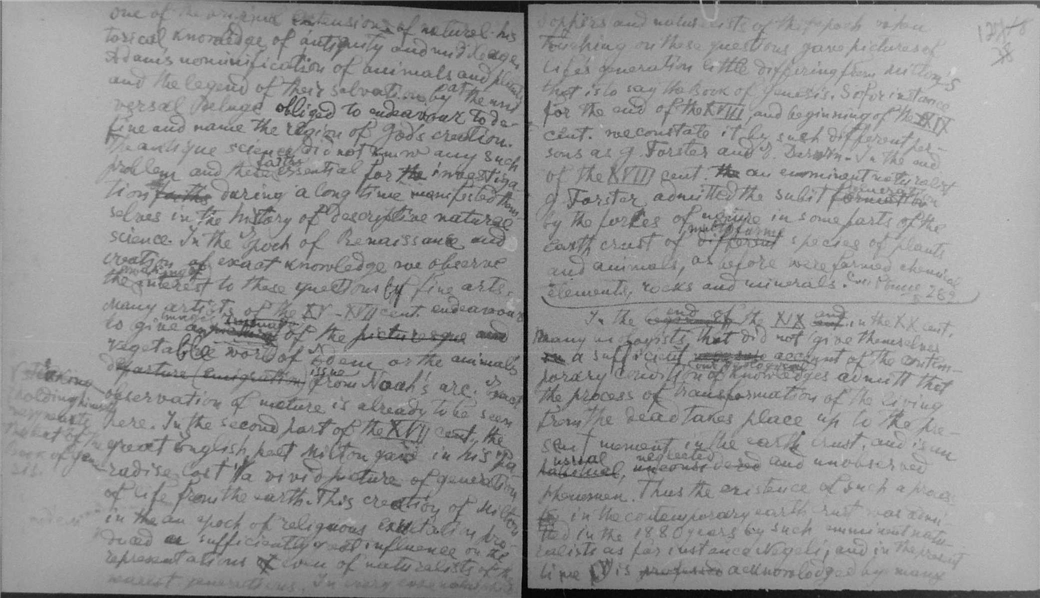 one of the original extensions of natural his-
torical knowledge of antiquity and middle ages
Adam's nominification of animals and plants
and the legend of their salvation by the uni
versal Deluge obliged to endeavour to de-
fine and name the region of God's creation.
Thantique science did not know any such
problem and these essential for the investiga-
facts
tion facts during a long time manifested them-
selves in the history of descriptive natural
science. In the epoch of Renaissance and
creation of exact knowledge we observe
the interest to those questions by fine arts.
Many artists of the XV-XVII cent. endeavour
to give of the picturesque and
images
vegetable word of Edem or the animals
departure (emigration) from Noah's arc,
issue
observation of nature is already to be seen
here. In the second part of the XVII cent. the
great English poet Milton gave in his "Pa
radise Lost" a vivid picture of generation
of life from the earth. This creation of Milton
in the an epoch of religious pro
duced a sufficiently influence on the
representations of even of naturalists of the
nearest generations. In every case
holding himself
text of the
book of gen
sophers and naturalists of this epoch when
touching on these questions gave pictures of
life's generation little differing from Milton's
that is to say the Book of Genesis. So for instance
for the end of the XVIII and beginning of the XIX
cent. we constate it by such different per-
sons as G. Forster and Darwin. In the end
of the XVIII cent. the an enominant naturalist
G. Forster admitted the subit formation
generation
by the forces of nature in some parts of the
earth crust of different species of plants
multiforme
and animals, as before were formed chemical
elements, rocks and minerals.
263
In the end of the XIX and in the XX cent.
many biologists, that did not give themselves
in a sufficient account of the contem-
porary condition of knowledges admitt that
the process of transformation of the living
from the dead takes place up to the pre-
sent moment in the earth crust, and is an
usual, neglected
unconsidered and unobserved
phenomen. Thus the existence of such a process
in the contemporary earth crust was admi-
tted in the 1880 years by such imminent natu-
ralists as for instance Negeli, and in the present
time is professed acknowledged by many